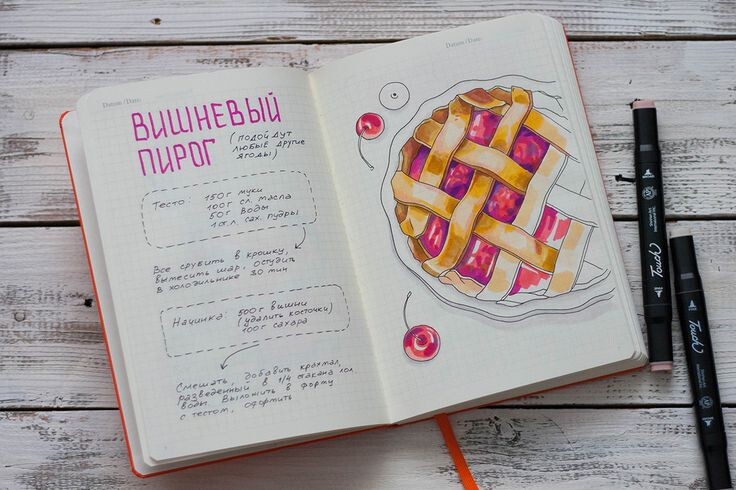 Datum / Date:
ВИШНЕВЫЙ
ПИРОГ
(ПОДОЙДУТ
ЛЮБЫЕ ДРУГИЕ
ЯГОДЫ)
Тесто: 150 г муки
100 г сл. масла
50 г воды
1 ст.л. сах. пудры
Все срубить в крошку,
вымесить шар, остудить
в холодильнике 30 мин
Начинка: 500 г вишни
(удалить косточки)
100 г сахара
Смешать, добавить крахмал,
разведенный в 1/4 стакана хол.
воды. Выложить в форму
с тестом, оформить
Datum / Date:
Touch
Touch